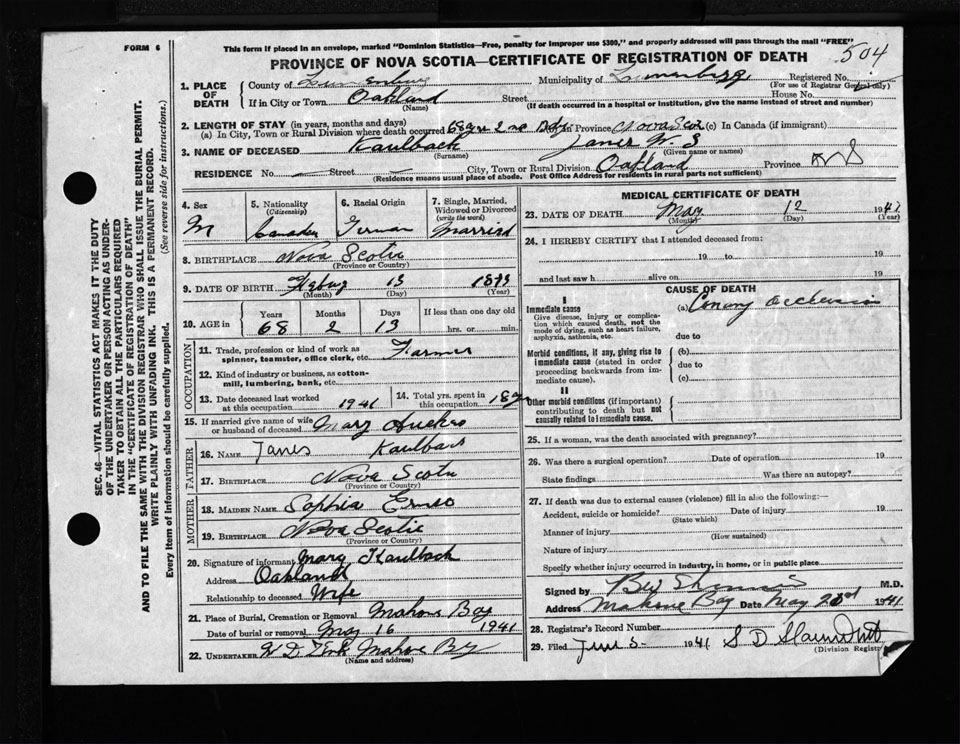 FORM 6
This form if placed in an envelope, marked "Dominion Statistics—Free, penalty for improper use $300," and properly addressed will pass through the mail "FREE"
504
PROVINCE OF NOVA SCOTIA—CERTIFICATE OF REGISTRATION OF DEATH
1. PLACE OF DEATH
County of Lunenburg Municipality of Lunenburg Registered No.
(For use of Registrar General only)
If in City or Town Oakland Street House No.
(Name) (If death occurred in a hospital or institution, give the name instead of street and number)
2. LENGTH OF STAY (in years, months and days)
(a) In City, Town or Rural Division where death occurred 68 yrs 2 mo In Province Nova Scot (c) In Canada (if immigrant)
3. NAME OF DECEASED Kaulback James W S
(Surname) (Given name or names)
RESIDENCE No. Street City, Town or Rural Division Oakland Province N S
(Residence means usual place of abode. Post Office Address for residents in rural parts not sufficient)
4. Sex M
5. Nationality (Citizenship) Canaden
6. Racial Origin German
7. Single, Married, Widowed or Divorced (write the word) Married
8. BIRTHPLACE Nova Scotia
(Province or Country)
9. DATE OF BIRTH 13
(Month) (Day) (Year)
10. AGE in Years Months Days If less than one day old
68 2 13 hrs. or min.
OCCUPATION
11. Trade, profession or kind of work as spinner, teamster, office clerk, etc. Farmer
12. Kind of industry or business, as cotton-mill, lumbering, bank, etc.
13. Date deceased last worked at this occupation 1941
14. Total yrs. spent in this occupation
15. If married give name of wife or husband of deceased Mary
FATHER
16. NAME James Kaulback
17. BIRTHPLACE Nova Scotia
(Province or Country)
MOTHER
18. MAIDEN NAME Sophia Ernst
19. BIRTHPLACE Nova Scotia
(Province or Country)
20. Signature of informant Mary Kaulback
Address Oakland
Relationship to deceased Wife
21. Place of Burial, Cremation or Removal Mahone Bay
Date of burial or removal May 16 1941
22. UNDERTAKER Mahone Bay
(Name and address)
MEDICAL CERTIFICATE OF DEATH
23. DATE OF DEATH May 12 1941
(Month) (Day) (Year)
24. I HEREBY CERTIFY that I attended deceased from:
19 to 19
and last saw h alive on 19
CAUSE OF DEATH
I
Immediate cause
Give disease, injury or complication which caused death, not the mode of dying, such as heart failure, asphyxia, asthenia, etc.
(a)
due to
Morbid conditions, if any, giving rise to immediate cause (stated in order proceeding backwards from immediate cause).
(b)
due to
(c)
II
Other morbid conditions (if important) contributing to death but not causally related to immediate cause.
25. If a woman, was the death associated with pregnancy?
26. Was there a surgical operation? Date of operation 19
State findings Was there an autopsy?
27. If death was due to external causes (violence) fill in also the following:—
Accident, suicide or homicide? Date of injury 19
(State which)
Manner of injury
(How sustained)
Nature of injury
Specify whether injury occurred in industry, in home, or in public place
Signed by M.D.
Address Mahone Bay Date May 1941
28. Registrar's Record Number
29. Filed 1941
(Division Registrar)
SEC. 46—VITAL STATISTICS ACT MAKES IT THE DUTY
OF THE UNDERTAKER OR PERSON ACTING AS UNDER-
TAKER TO OBTAIN ALL THE PARTICULARS REQUIRED
IN THE "CERTIFICATE OF REGISTRATION OF DEATH"
AND TO FILE THE SAME WITH THE DIVISION REGISTRAR WHO SHALL ISSUE THE BURIAL PERMIT.
WRITE PLAINLY WITH UNFADING INK. THIS IS A PERMANENT RECORD.
Every item of information should be carefully supplied. (See reverse side for instructions.)